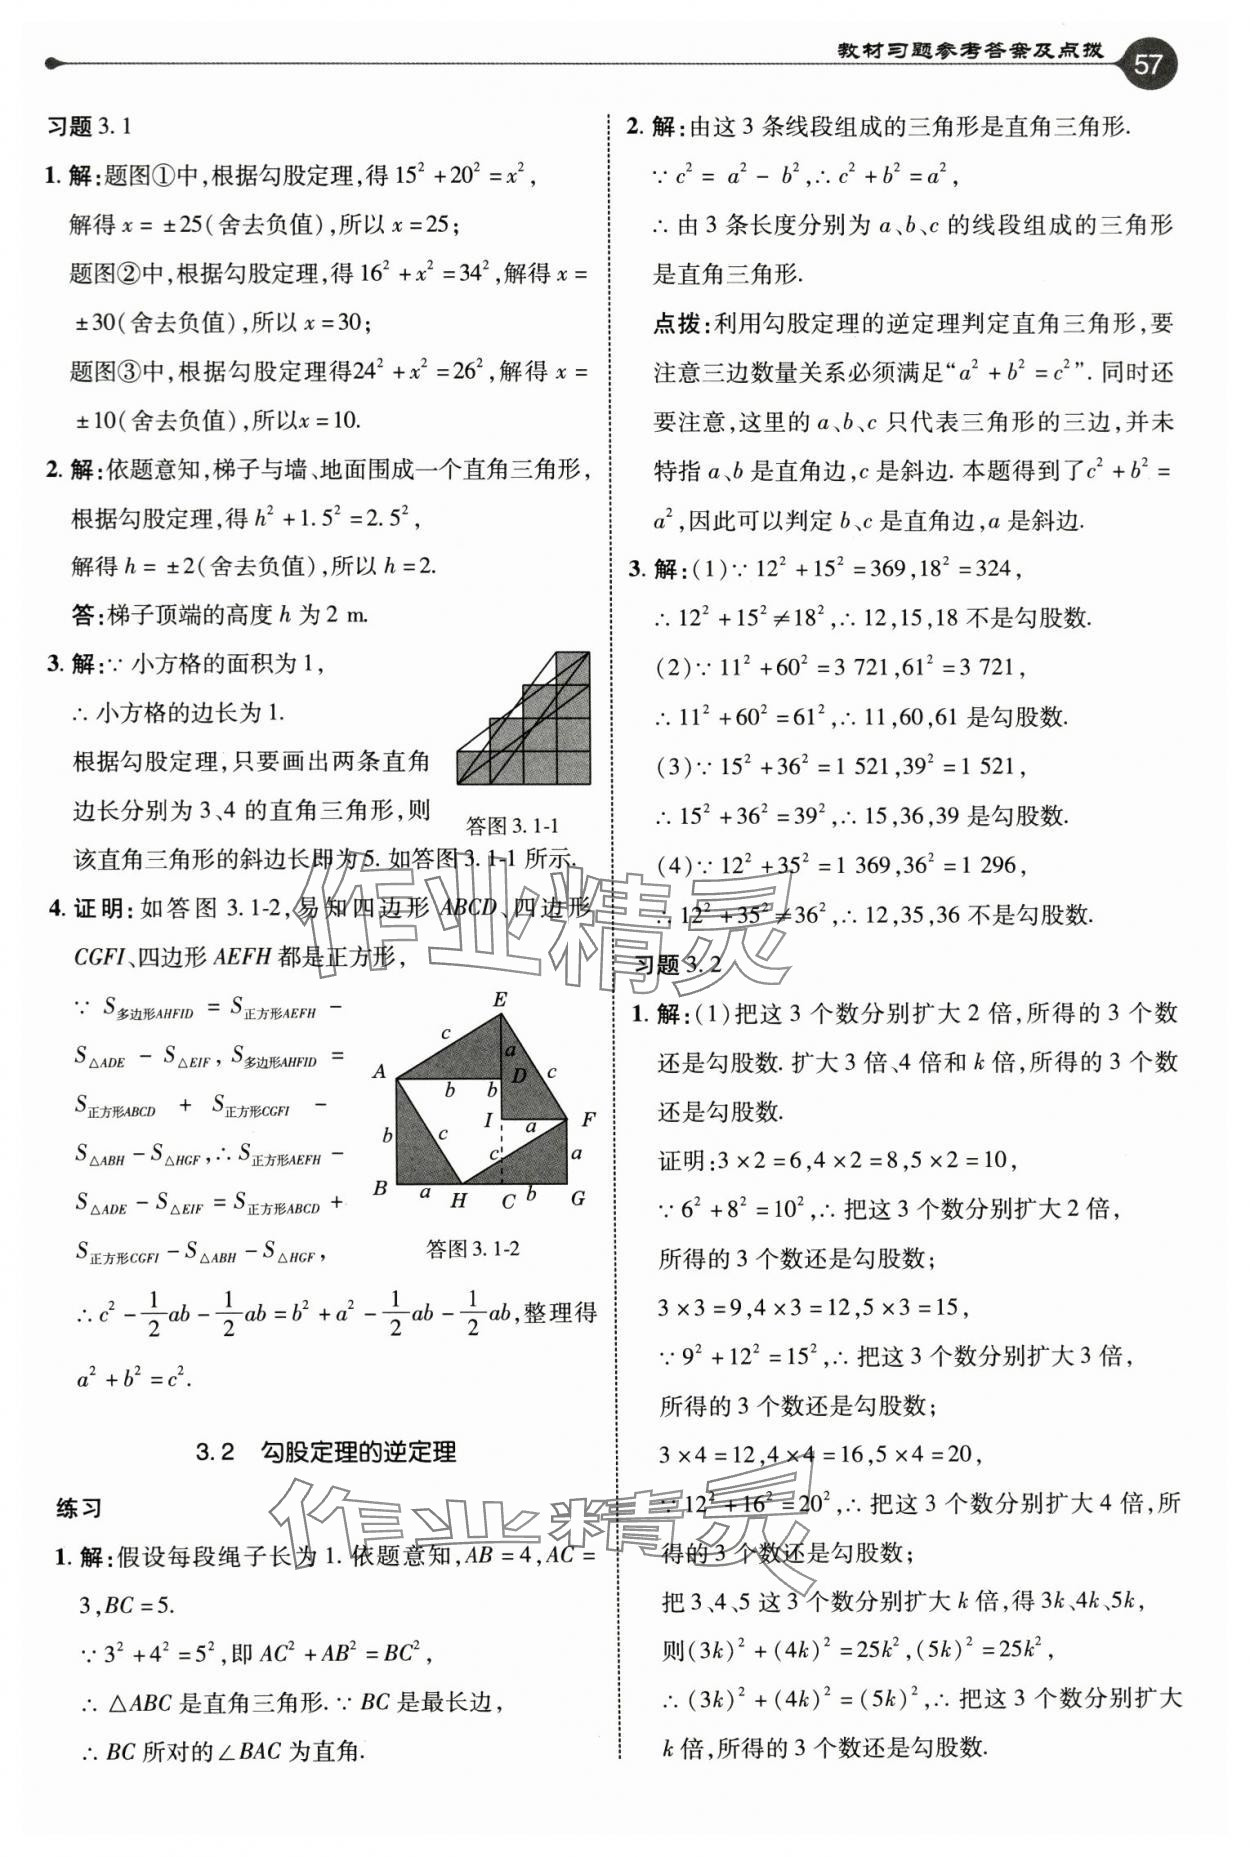 教材习题参考答案及点拨 57
习题 3.1
1. 解:题图①中,根据勾股定理,得 15² + 20² = x²,
解得 x = ±25(舍去负值),所以 x = 25;
题图②中,根据勾股定理,得 16² + x² = 34²,解得 x =
±30(舍去负值),所以 x = 30;
题图③中,根据勾股定理得24² + x² = 26²,解得 x =
±10(舍去负值),所以x = 10.
2. 解:依题意知,梯子与墙、地面围成一个直角三角形,
根据勾股定理,得 h² + 1.5² = 2.5²,
解得 h = ±2(舍去负值),所以 h = 2.
答:梯子顶端的高度 h 为 2 m.
3. 解:∵ 小方格的面积为 1,
∴ 小方格的边长为 1.
根据勾股定理,只要画出两条直角
边长分别为 3、4 的直角三角形,则
答图 3.1-1
该直角三角形的斜边长即为 5. 如答图 3.1-1 所示.
4. 证明:如答图 3.1-2,易知四边形 ABCD、四边形
CGFI、四边形 AEFH 都是正方形,
∵ S多边形AHFID = S正方形AEFH −
S△ADE − S△EIF, S多边形AHFID =
S正方形ABCD + S正方形CGFI −
S△ABH − S△HGF,∴ S正方形AEFH −
S△ADE − S△EIF = S正方形ABCD +
S正方形CGFI − S△ABH − S△HGF,
E
c
a
A
D
c
b
b
I
a
F
b
c
c
a
B
a
H
C
b
G
答图 3.1-2
∴ c² − 1/2 ab − 1/2 ab = b² + a² − 1/2 ab − 1/2 ab,整理得
a² + b² = c².
3.2 勾股定理的逆定理
练习
1. 解:假设每段绳子长为 1. 依题意知,AB = 4,AC =
3,BC = 5.
∵ 3² + 4² = 5²,即 AC² + AB² = BC²,
∴ △ABC 是直角三角形. ∵ BC 是最长边,
∴ BC 所对的∠BAC 为直角.
2. 解:由这 3 条线段组成的三角形是直角三角形.
∵ c² = a² − b²,∴ c² + b² = a²,
∴ 由 3 条长度分别为 a、b、c 的线段组成的三角形
是直角三角形.
点拨:利用勾股定理的逆定理判定直角三角形,要
注意三边数量关系必须满足“a² + b² = c²”. 同时还
要注意,这里的 a、b、c 只代表三角形的三边,并未
特指 a、b 是直角边,c 是斜边. 本题得到了c² + b² =
a²,因此可以判定 b、c 是直角边,a 是斜边.
3. 解:(1)∵ 12² + 15² = 369,18² = 324,
∴ 12² + 15² ≠ 18²,∴ 12,15,18 不是勾股数.
(2)∵ 11² + 60² = 3 721,61² = 3 721,
∴ 11² + 60² = 61²,∴ 11,60,61 是勾股数.
(3)∵ 15² + 36² = 1 521,39² = 1 521,
∴ 15² + 36² = 39²,∴ 15,36,39 是勾股数.
(4)∵ 12² + 35² = 1 369,36² = 1 296,
∴ 12² + 35² ≠ 36²,∴ 12,35,36 不是勾股数.
习题 3.2
1. 解:(1)把这 3 个数分别扩大 2 倍,所得的 3 个数
还是勾股数. 扩大 3 倍、4 倍和 k 倍,所得的 3 个数
还是勾股数.
证明:3 × 2 = 6,4 × 2 = 8,5 × 2 = 10,
∵ 6² + 8² = 10²,∴ 把这 3 个数分别扩大 2 倍,
所得的 3 个数还是勾股数;
3 × 3 = 9,4 × 3 = 12,5 × 3 = 15,
∵ 9² + 12² = 15²,∴ 把这 3 个数分别扩大 3 倍,
所得的 3 个数还是勾股数;
3 × 4 = 12,4 × 4 = 16,5 × 4 = 20,
∵ 12² + 16² = 20²,∴ 把这 3 个数分别扩大 4 倍,所
得的 3 个数还是勾股数;
把 3、4、5 这 3 个数分别扩大 k 倍,得 3k、4k、5k,
则(3k)² + (4k)² = 25k²,(5k)² = 25k²,
∴ (3k)² + (4k)² = (5k)²,∴ 把这 3 个数分别扩大
k 倍,所得的 3 个数还是勾股数.
作业精灵
作业精灵